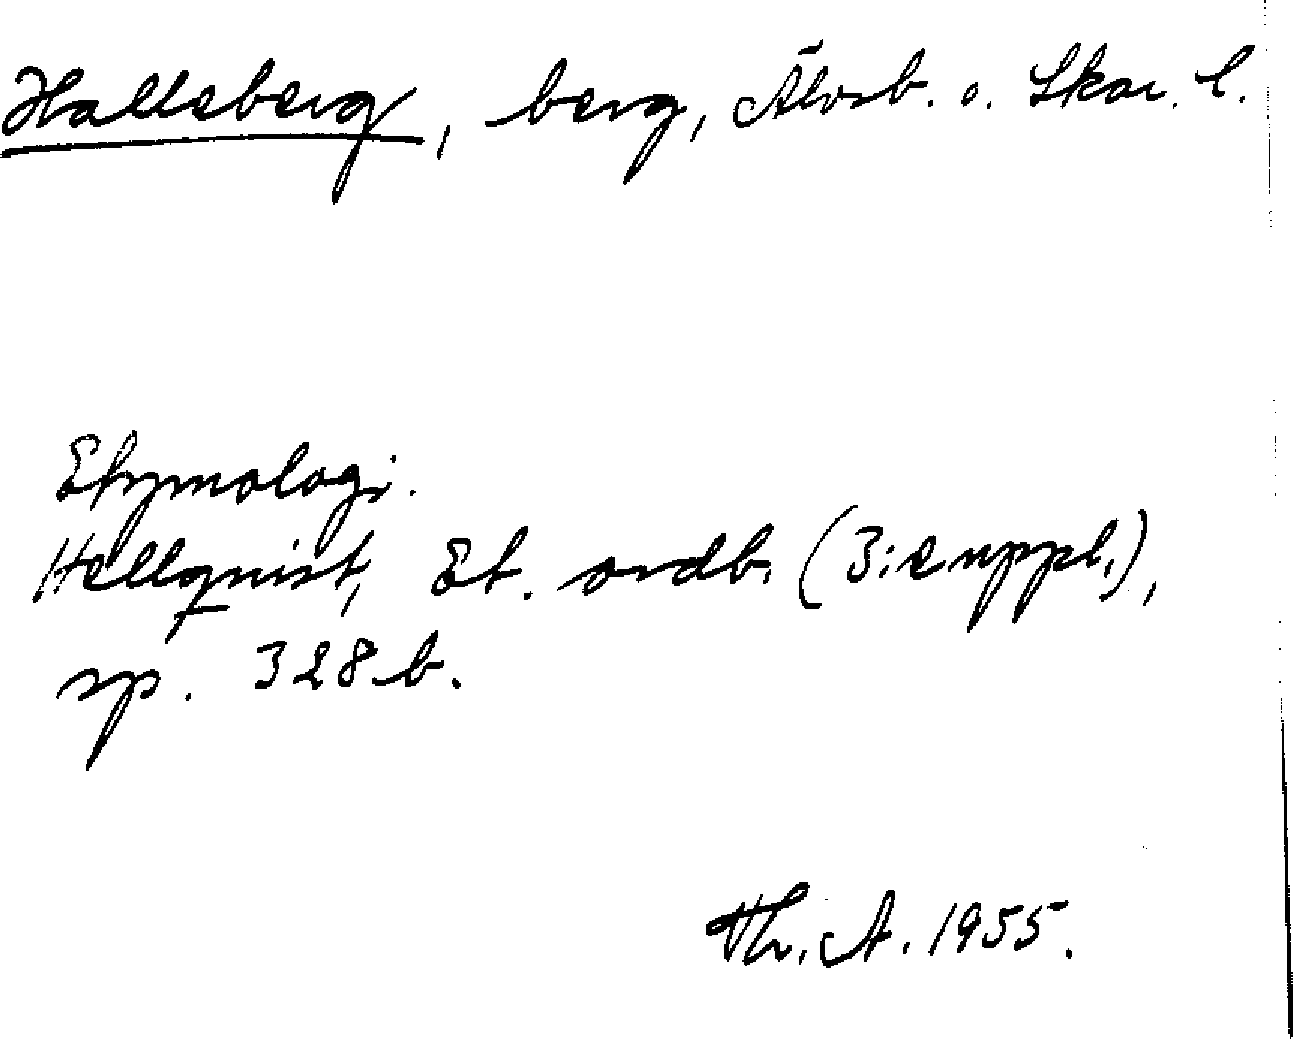 Halleberg, berg, Älvsb. o. Skar. l.
Etymologi.
Hellquist, Et. ordb. (3:e uppl.),
sp. 328 b.
Th. A. 1955.